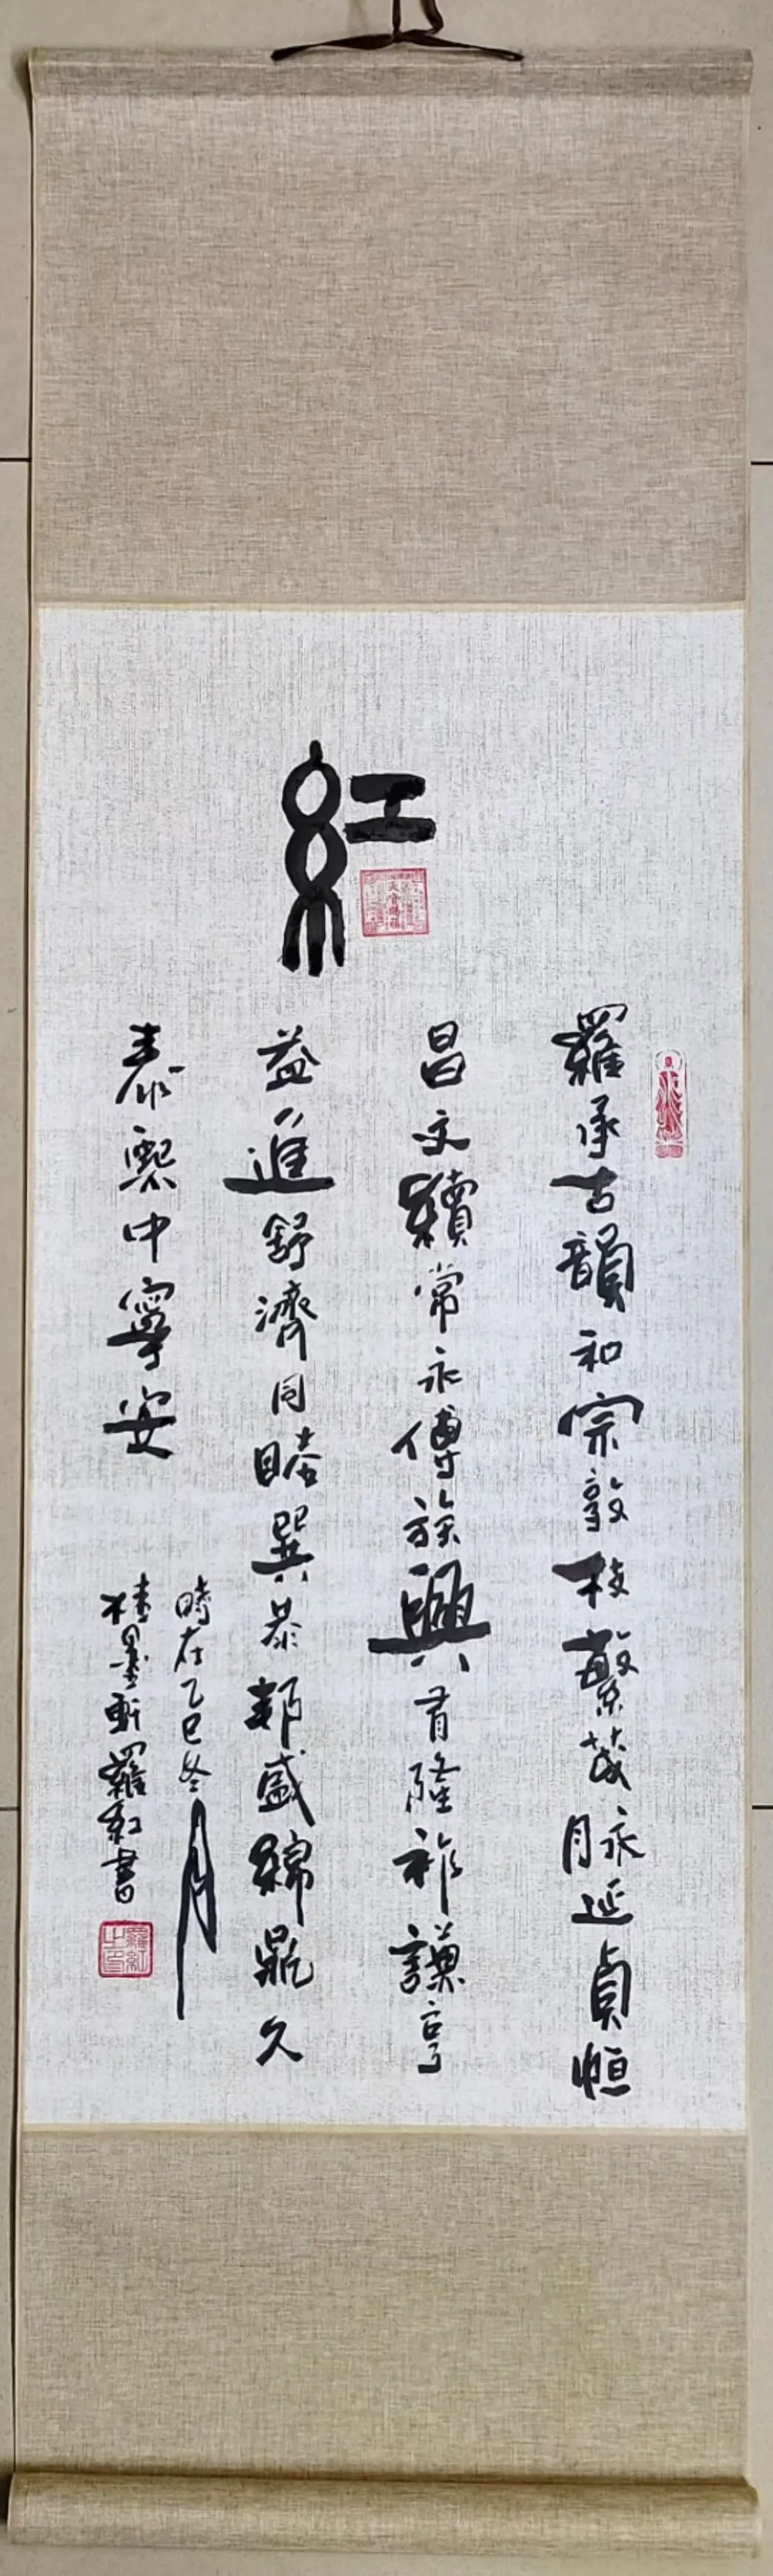 紅
羅承古韻和宗敦枝繁茂脉延貞恒
昌文績常永傳族興肯隆祚謙亨
益進舒濟同睦巽恭邦盛綿鼎久
泰熙中寧安
時在乙巳冬月
桂墨軒羅紅書
羅紅之印